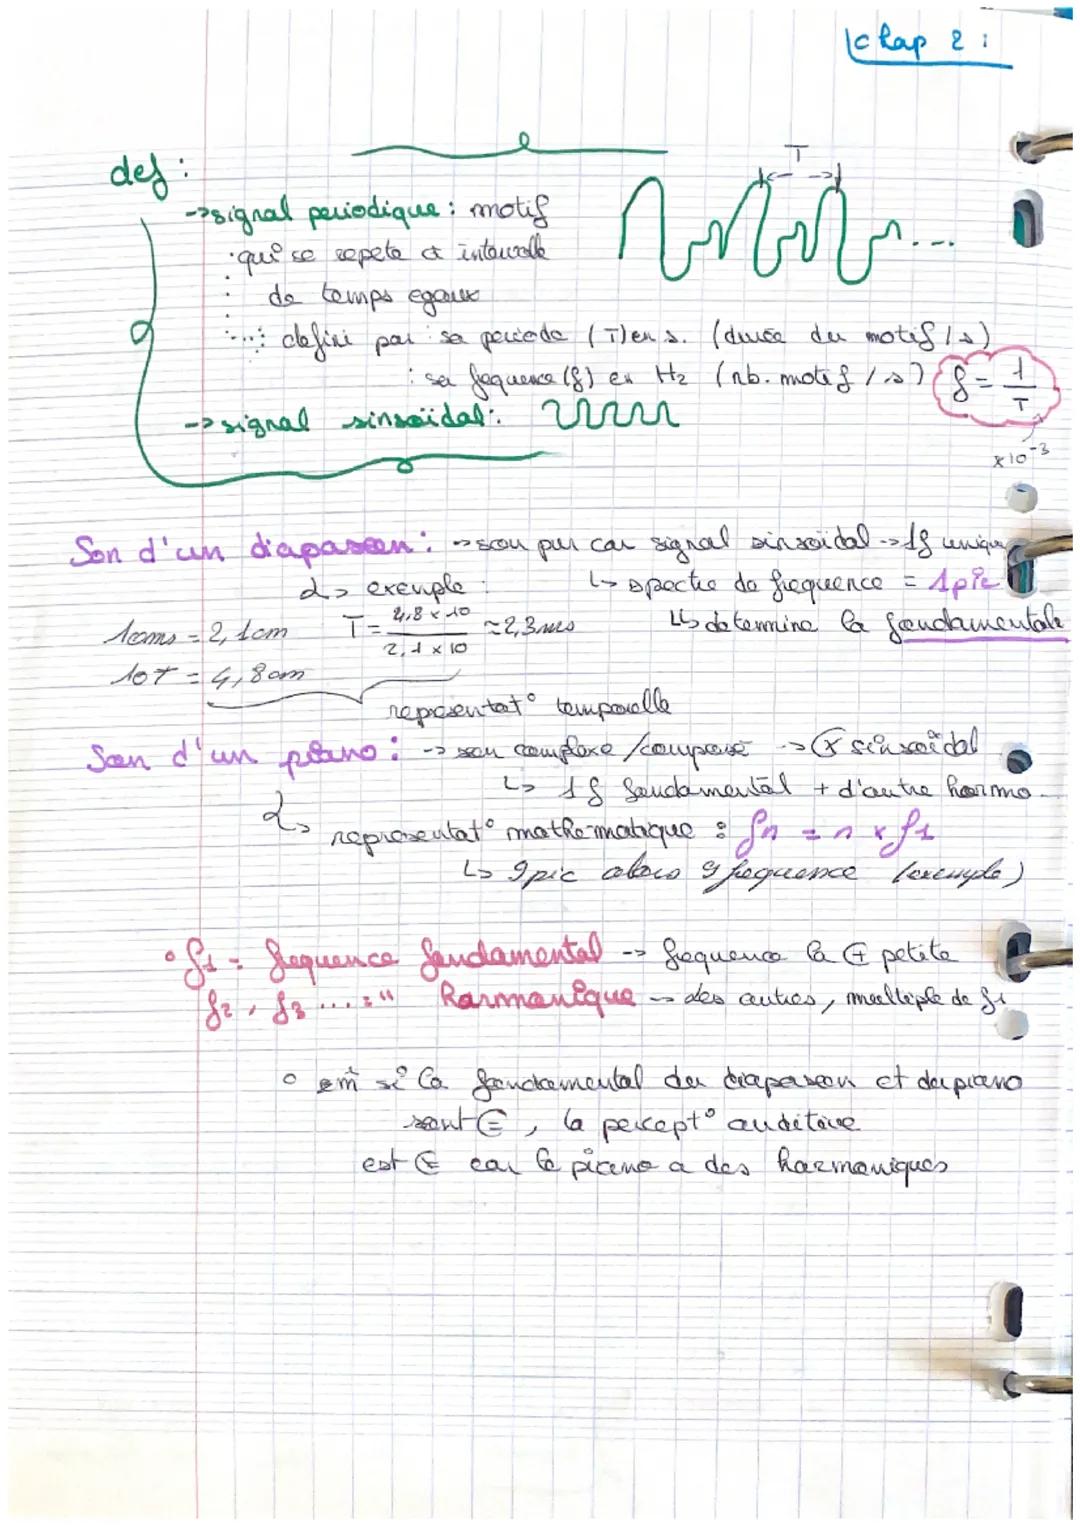 Chap 2 :
def :
T
-> signal periodique : motif
qui se repete a intervalle
de temps egaux
defini par : sa periode (T) en s. (durée du motif / s)
: sa fequence (f) en Hz (nb. motif / s) f = 1/T
-> signal sinsoïdal :
x10-3
Son d'un diapason : -> son pur car signal sinsoïdal -> 1f unique
L> exemple :
L> spectre de frequence = 1 pic
10ms = 2,1cm T = 4,8 x 10 / 2,1 x 10 ≈ 2,3ms
L> determine la fondamentale
10T = 4,8cm
representat° temporelle
Son d'un piano : -> son complexe / composé -> sinsoïdal
L> 1f fondamental + d'autre harmo.
L> representat° mathematique : fn = n x f1
L> 9 pic alors 9 fequence (exemple)
° f1 = frequence fondamental -> frequence la + petite
f2, f3 .... = " harmonique -> des autres, multiple de f1
° em si la fondamental du diapason et du piano
sont =, la percept° auditive
est ≠ car le piano a des harmoniques